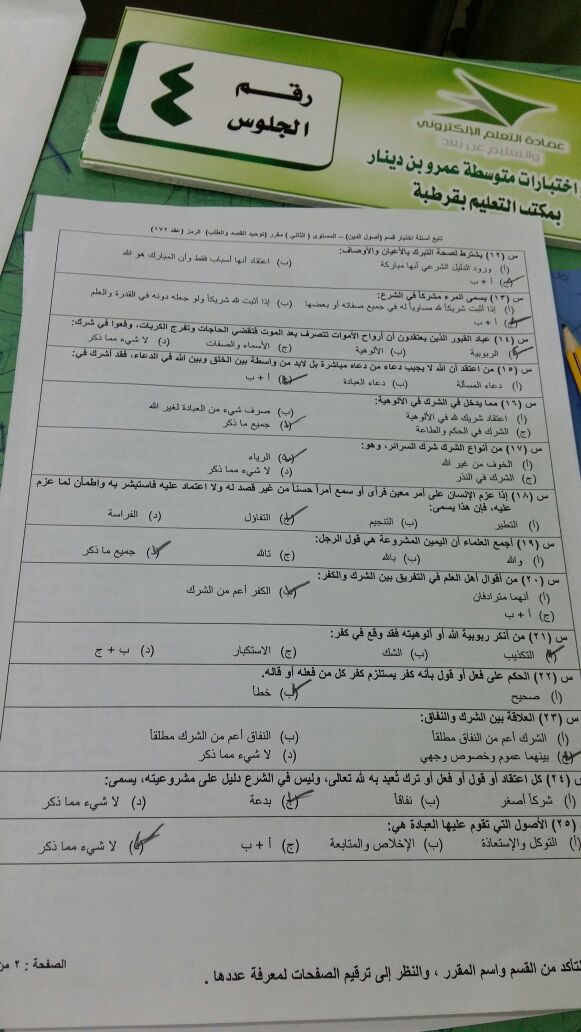 رقم
الجلوس
٤
عمادة التعلم الإلكتروني
والتعليم عن بعد
اختبارات متوسطة عمرو بن دينار
بمكتب التعليم بقرطبة
تابع أسئلة اختبار قسم (أصول الدين) – المستوى ( الثاني ) مقرر (توحيد القصد والطلب) الرمز (عقد ١٧٢)
س (١٢) يشترط لصحة التبرك بالأعيان والأوصاف:
(أ) ورود الدليل الشرعي أنها مباركة (ب) اعتقاد أنها أسباب فقط وأن المبارك هو الله
أ + ب
س (١٣) يسمى المرء مشركاً في الشرع:
(أ) إذا أثبت لله شريكاً مساوياً له في جميع صفاته أو بعضها (ب) إذا أثبت لله شريكاً ولو جعله دونه في القدرة والعلم
أ + ب
س (١٤) عباد القبور الذين يعتقدون أن أرواح الأموات تتصرف بعد الموت فتقضي الحاجات وتفرج الكربات، وقعوا في شرك:
الربوبية (ب) الألوهية (ج) الأسماء والصفات (د) لا شيء مما ذكر
س (١٥) من اعتقد أن الله لا يجيب دعاء من دعاه مباشرة بل لابد من واسطة بين الخلق وبين الله في الدعاء، فقد أشرك في:
(أ) دعاء المسألة (ب) دعاء العبادة أ + ب
س (١٦) مما يدخل في الشرك في الألوهية:
(أ) اعتقاد شريك لله في الألوهية (ب) صرف شيء من العبادة لغير الله
(ج) الشرك في الحكم والطاعة (د) جميع ما ذكر
س (١٧) من أنواع الشرك شرك السرائر، وهو:
(أ) الخوف من غير الله (ب) الرياء
(ج) الشرك في النذر (د) لا شيء مما ذكر
س (١٨) إذا عزم الإنسان على أمر معين فرأى أو سمع أمراً حسناً من غير قصد له ولا اعتماد عليه فاستبشر به واطمأن لما عزم
عليه، فإن هذا يسمى:
(أ) التطير (ب) التنجيم (ج) التفاؤل (د) الفراسة
س (١٩) أجمع العلماء أن اليمين المشروعة هي قول الرجل:
(أ) والله (ب) بالله (ج) تالله (د) جميع ما ذكر
س (٢٠) من أقوال أهل العلم في التفريق بين الشرك والكفر:
(أ) أنهما مترادفان (ب) الكفر أعم من الشرك
(ج) أ + ب
س (٢١) من أنكر ربوبية الله أو ألوهيته فقد وقع في كفر:
(أ) التكذيب (ب) الشك (ج) الاستكبار (د) ب + ج
س (٢٢) الحكم على فعل أو قول بأنه كفر يستلزم كفر كل من فعله أو قاله.
(أ) صحيح (ب) خطأ
س (٢٣) العلاقة بين الشرك والنفاق:
(أ) الشرك أعم من النفاق مطلقاً (ب) النفاق أعم من الشرك مطلقاً
بينهما عموم وخصوص وجهي (د) لا شيء مما ذكر
س (٢٤) كل اعتقاد أو قول أو فعل أو ترك تُعبد به لله تعالى، وليس في الشرع دليل على مشروعيته، يسمى:
(أ) شركاً أصغر (ب) نفاقاً (ج) بدعة (د) لا شيء مما ذكر
(٢٥) الأصول التي تقوم عليها العبادة هي:
(أ) التوكل والإستعاذة (ب) الإخلاص والمتابعة (ج) أ + ب لا شيء مما ذكر
التأكد من القسم واسم المقرر ، والنظر إلى ترقيم الصفحات لمعرفة عددها .
الصفحة : ٢ من